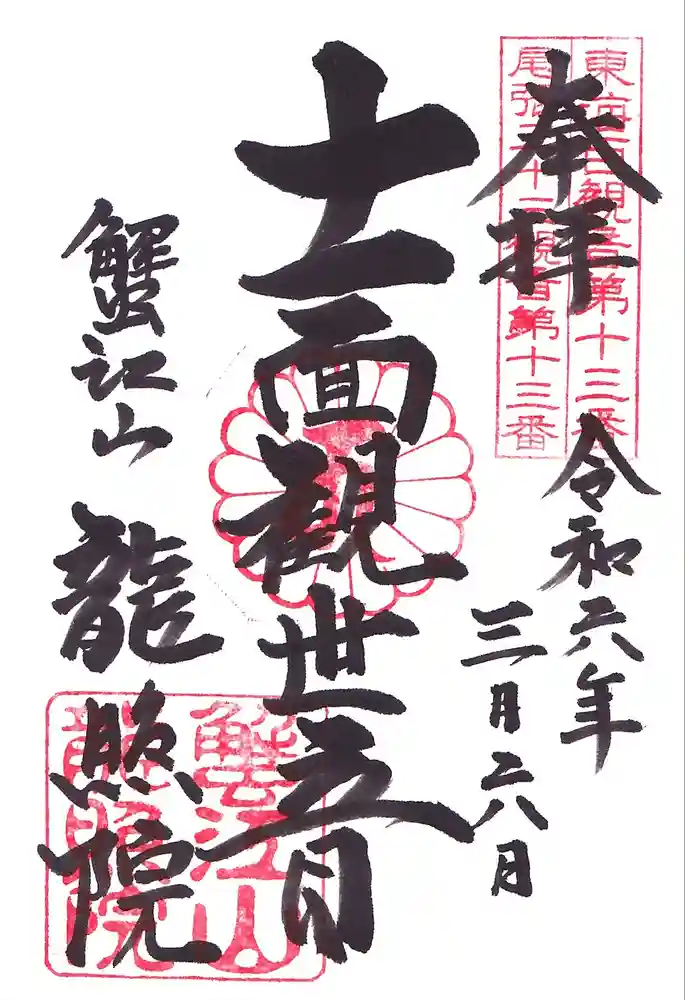 奉拝
東海百観音第十三番
尾張三十三観音第十三番
令和六年
三月六日
十一面観世音
蟹江山 龍照院
蟹江山
龍照院